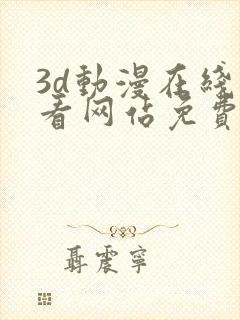 3d動漫在綫
看网佔免費
聶震寧